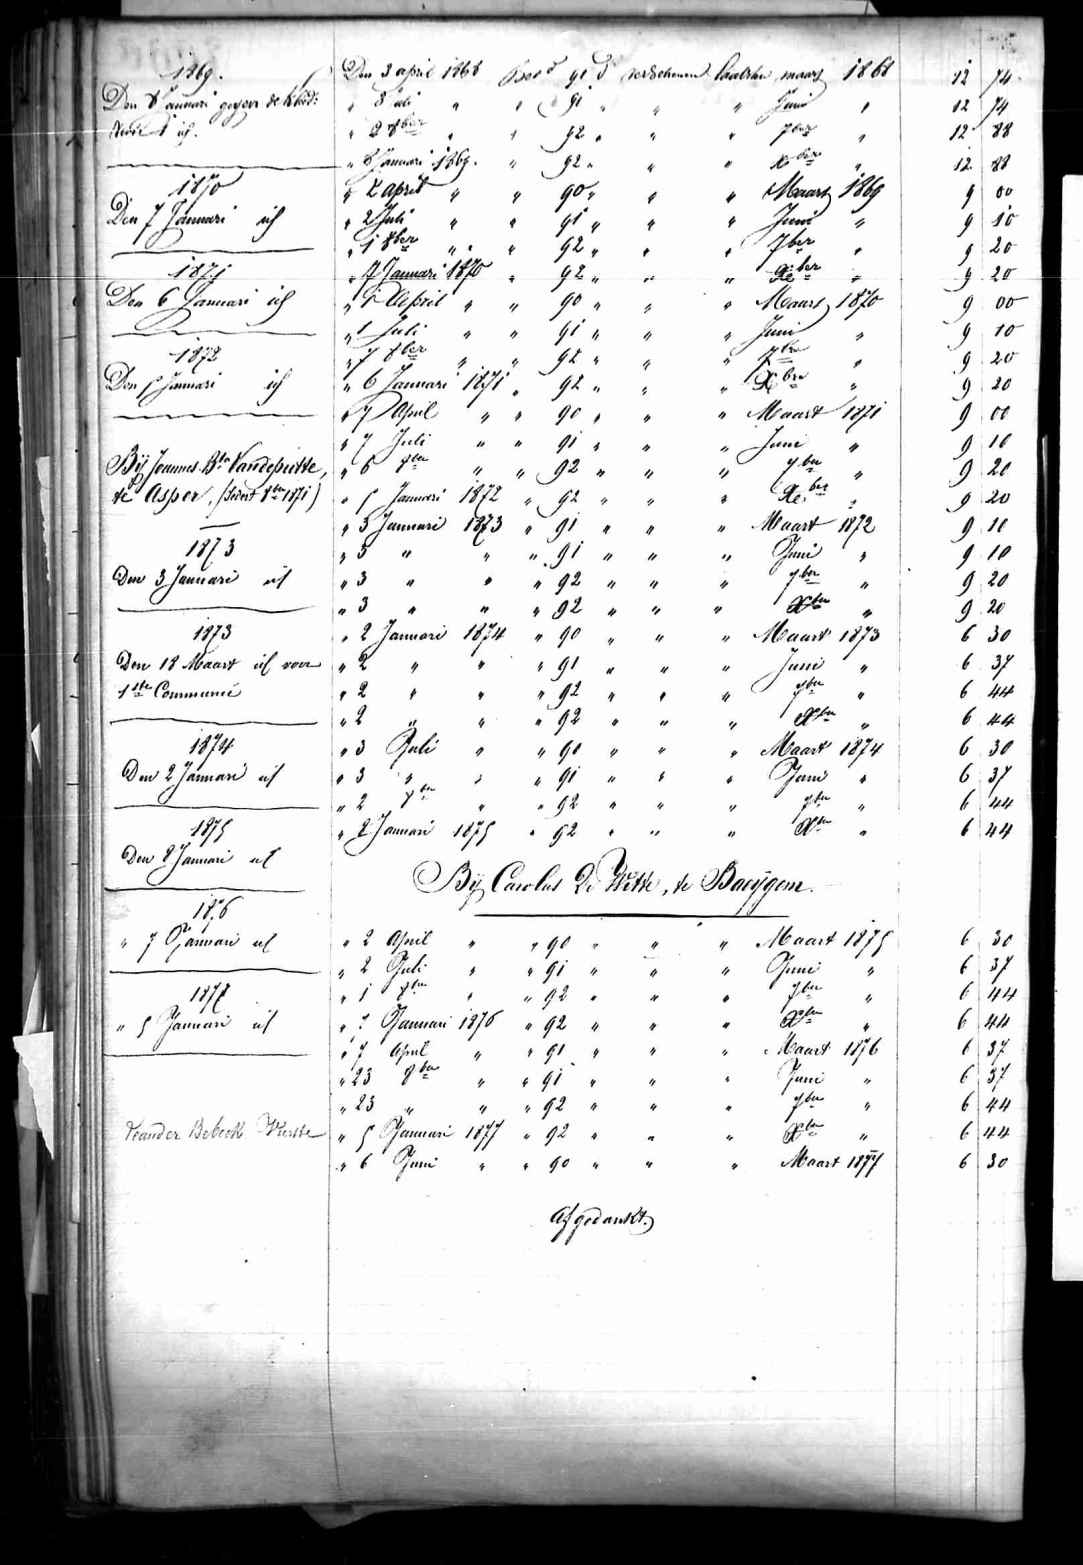 1869.
Den 8 Januari gegeven de kleed:
1870
Den 7 Januari id
1871
Den 6 Januari id
1872
Den 5 Januari id
Bij Joannes Bta Vandeputte,
te Asper, (sedert 8ber 1871)
1873
Den 3 Januari id
1873
Den 18 Maart id voor
1ste Communie
1874
Den 2 Januari id
1875
Den 2 Januari id
1876
" 7 Januari id
1877
" 5 Januari id
Den 3 april 1868 91 d verschenen laatsten maart 1868 12 74
" 3 Juli " " 91 " " " Juni " 12 74
" 2 8ber " " 92 " " " 7ber " 12 88
" 8 Januari 1869. " 92 " " " Xber " 12 88
" 2 April " " 90 " " " Maart 1869 9 00
" 2 Juli " " 91 " " " Juni " 9 10
" 1 8ber " " 92 " " " 7ber " 9 20
" 7 Januari 1870 " 92 " " " Xber " 9 20
" 1 April " " 90 " " " Maart 1870 9 00
" 1 Juli " " 91 " " " Juni " 9 10
" 7 8ber " " 92 " " " 7bre " 9 20
" 6 Januari 1871 " 92 " " " Xbre " 9 20
" 7 April " " 90 " " " Maart 1871 9 00
" 7 Juli " " 91 " " " Juni " 9 10
" 6 8ber " " 92 " " " 7ber " 9 20
" 5 Januari 1872 " 92 " " " Xber " 9 20
" 3 Januari 1873 " 91 " " " Maart 1872 9 10
" 3 " " " 91 " " " Juni " 9 10
" 3 " " " 92 " " " 7ber " 9 20
" 3 " " " 92 " " " Xber " 9 20
" 2 Januari 1874 " 90 " " " Maart 1873 6 30
" 2 " " " 91 " " " Juni " 6 37
" 2 " " " 92 " " " 7ber " 6 44
" 2 " " " 92 " " " Xber " 6 44
" 3 Juli " " 90 " " " Maart 1874 6 30
" 3 " " " 91 " " " Juni " 6 37
" 2 8ber " " 92 " " " 7ber " 6 44
" 2 Januari 1875 " 92 " " " Xber " 6 44
Bij Carolus De Witte, te Baeygem.
" 2 April " " 90 " " " Maart 1875 6 30
" 2 Juli " " 91 " " " Juni " 6 37
" 1 8ber " " 92 " " " 7ber " 6 44
" 7 Januari 1876 " 92 " " " Xber " 6 44
" 7 April " " 91 " " " Maart 1876 6 37
" 23 8ber " " 91 " " " Juni " 6 37
" 23 " " " 92 " " " 7ber " 6 44
" 5 Januari 1877 " 92 " " " Xber " 6 44
" 6 Juni " " 90 " " " Maart 1877 6 30
Afgedankt.